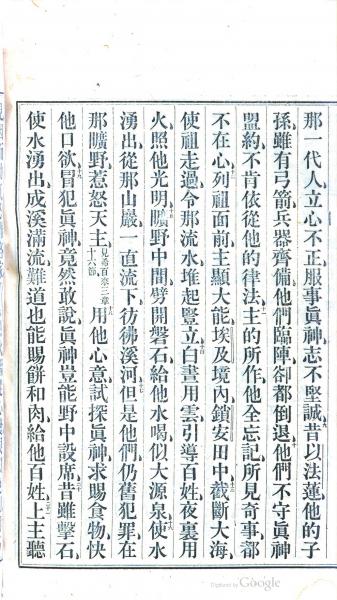 那一代人立心不正服事眞神志不堅誠昔以法蓮他的子
孫雖有弓箭兵器齊備他們臨陣卻都倒退他們不守眞神
盟約不肯依從他的律法主的所作他全忘記所見奇事都
不在心列祖面前主顯大能埃及境內鎖安田中截斷大海
使祖走過令那流水堆起豎立白晝用雲引導百姓夜裏用
火照他光明曠野中間劈開磐石給他水喝似大源泉使水
湧出從那山巖一直流下彷彿溪河但是他們仍舊犯罪在
那曠野惹怒天主見希百來三章十六節用他心意試探眞神求賜食物快
他口欲冒犯眞神竟然敢說眞神豈能野中設席昔雖擊石
使水湧出成溪滿流難道也能賜餅和肉給他百姓上主聽
Digitized by Google